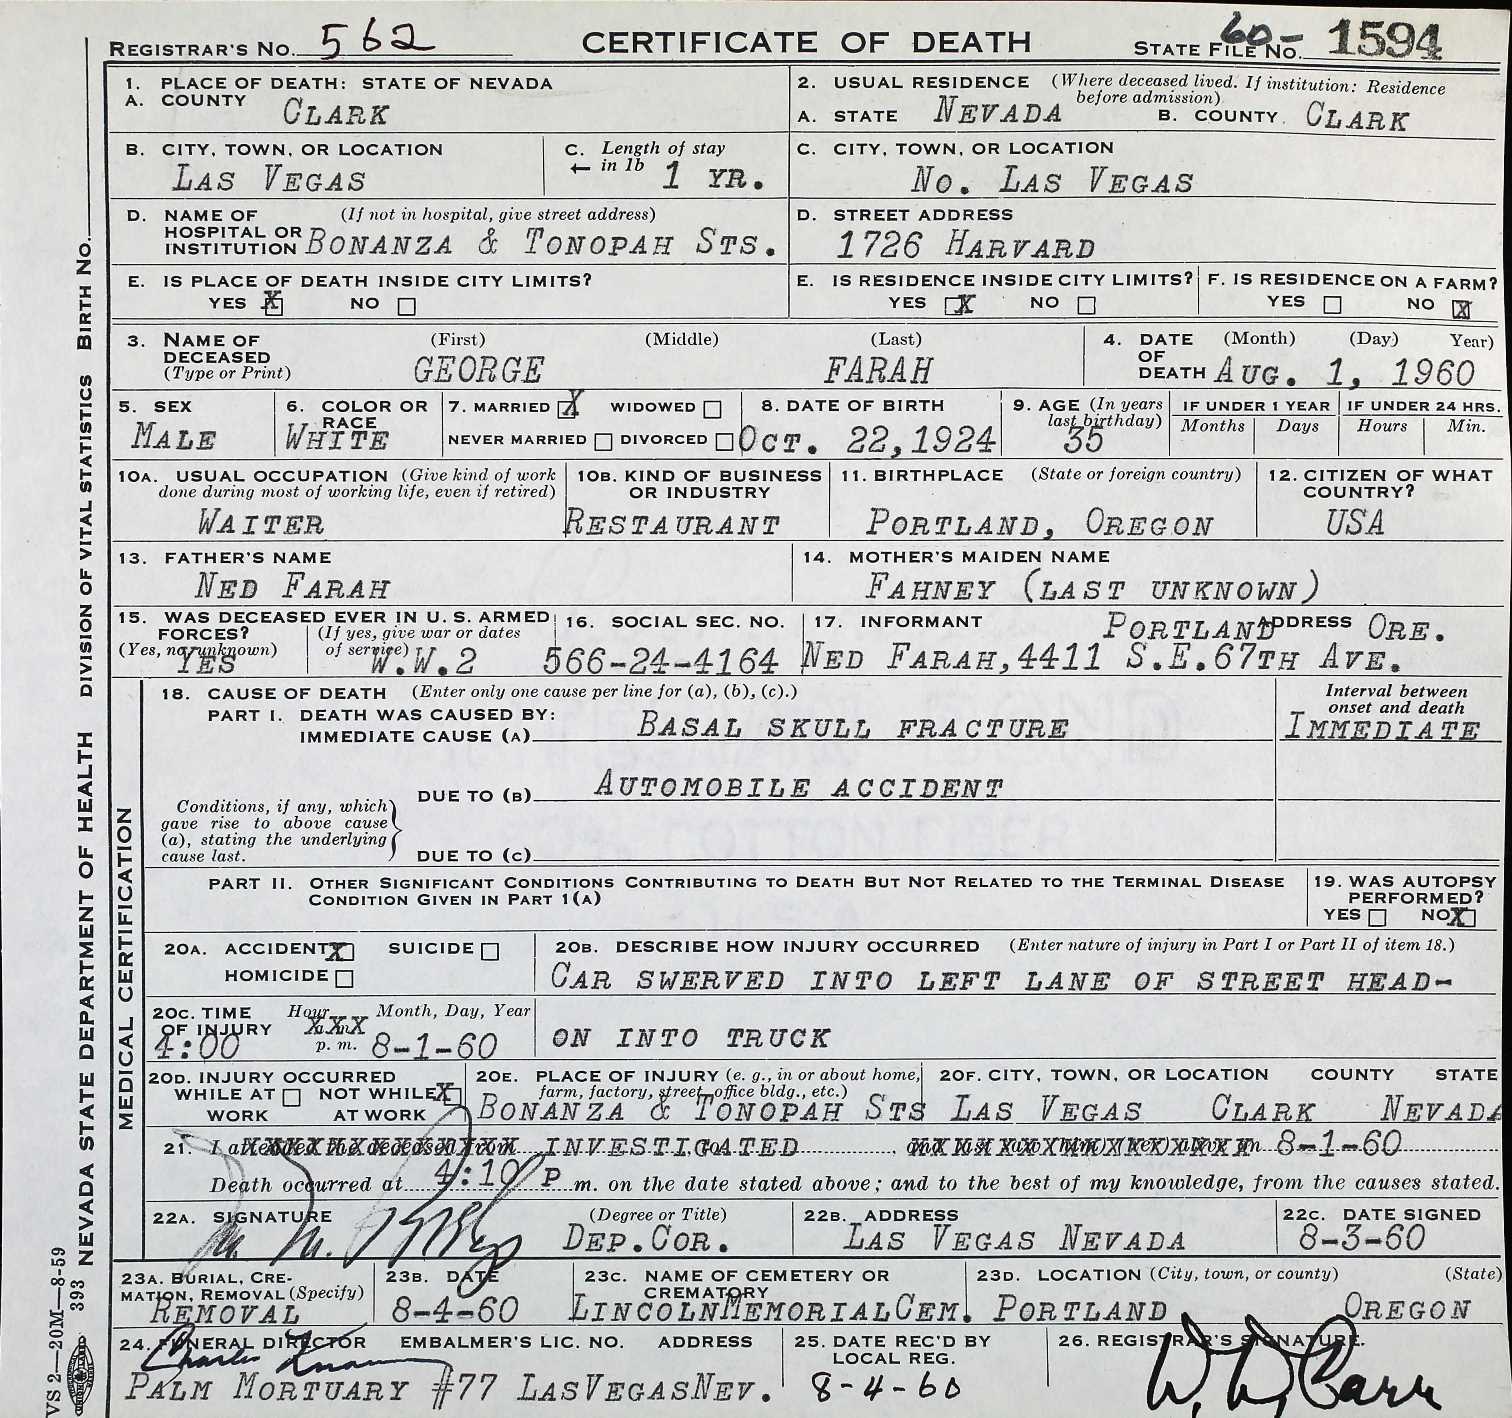 REGISTRAR'S NO. 562 CERTIFICATE OF DEATH STATE FILE NO. 60-1594
1. PLACE OF DEATH: STATE OF NEVADA
A. COUNTY CLARK
2. USUAL RESIDENCE (Where deceased lived. If institution: Residence before admission)
A. STATE NEVADA B. COUNTY CLARK
B. CITY, TOWN, OR LOCATION
LAS VEGAS
C. Length of stay
← in 1b 1 YR.
C. CITY, TOWN, OR LOCATION
NO. LAS VEGAS
D. NAME OF (If not in hospital, give street address)
HOSPITAL OR
INSTITUTION BONANZA & TONOPAH STS.
D. STREET ADDRESS
1726 HARVARD
E. IS PLACE OF DEATH INSIDE CITY LIMITS?
YES X NO
E. IS RESIDENCE INSIDE CITY LIMITS?
YES X NO
F. IS RESIDENCE ON A FARM?
YES NO X
3. NAME OF DECEASED (Type or Print) (First) (Middle) (Last)
GEORGE FARAH
4. DATE OF DEATH (Month) (Day) Year)
AUG. 1, 1960
5. SEX
MALE
6. COLOR OR RACE
WHITE
7. MARRIED X WIDOWED
NEVER MARRIED DIVORCED
8. DATE OF BIRTH
OCT. 22,1924
9. AGE (In years last birthday)
35
IF UNDER 1 YEAR
Months Days
IF UNDER 24 HRS.
Hours Min.
10A. USUAL OCCUPATION (Give kind of work done during most of working life, even if retired)
WAITER
10B. KIND OF BUSINESS OR INDUSTRY
RESTAURANT
11. BIRTHPLACE (State or foreign country)
PORTLAND, OREGON
12. CITIZEN OF WHAT COUNTRY?
USA
13. FATHER'S NAME
NED FARAH
14. MOTHER'S MAIDEN NAME
FAHNEY (LAST UNKNOWN)
15. WAS DECEASED EVER IN U. S. ARMED FORCES?
(Yes, no, unknown) (If yes, give war or dates of service)
YES W.W.2
16. SOCIAL SEC. NO.
566-24-4164
17. INFORMANT ADDRESS
PORTLAND ORE.
NED FARAH,4411 S.E.67TH AVE.
MEDICAL CERTIFICATION
18. CAUSE OF DEATH (Enter only one cause per line for (a), (b), (c).)
PART I. DEATH WAS CAUSED BY:
IMMEDIATE CAUSE (A) BASAL SKULL FRACTURE
Interval between onset and death
IMMEDIATE
DUE TO (B) AUTOMOBILE ACCIDENT
Conditions, if any, which
gave rise to above cause
(a), stating the underlying
cause last.
DUE TO (C)
PART II. OTHER SIGNIFICANT CONDITIONS CONTRIBUTING TO DEATH BUT NOT RELATED TO THE TERMINAL DISEASE
CONDITION GIVEN IN PART 1(A)
19. WAS AUTOPSY PERFORMED?
YES NO X
20A. ACCIDENT X SUICIDE
HOMICIDE
20B. DESCRIBE HOW INJURY OCCURRED (Enter nature of injury in Part I or Part II of item 18.)
CAR SWERVED INTO LEFT LANE OF STREET HEAD-
ON INTO TRUCK
20C. TIME OF INJURY Hour Month, Day, Year
4:00 XXX p. m. 8-1-60
20D. INJURY OCCURRED
WHILE AT WORK NOT WHILE AT WORK X
20E. PLACE OF INJURY (e. g., in or about home, farm, factory, street, office bldg., etc.)
BONANZA & TONOPAH STS
20F. CITY, TOWN, OR LOCATION COUNTY STATE
LAS VEGAS CLARK NEVADA
21. I attended the deceased from INVESTIGATED, to , 8-1-60
Death occurred at 4:10 P m. on the date stated above; and to the best of my knowledge, from the causes stated.
22A. SIGNATURE (Degree or Title)
DEP.COR.
22B. ADDRESS
LAS VEGAS NEVADA
22C. DATE SIGNED
8-3-60
23A. BURIAL, CREMATION, REMOVAL (Specify)
REMOVAL
23B. DATE
8-4-60
23C. NAME OF CEMETERY OR CREMATORY
LINCOLNMEMORIALCEM.
23D. LOCATION (City, town, or county) (State)
PORTLAND OREGON
24. FUNERAL DIRECTOR EMBALMER'S LIC. NO. ADDRESS
PALM MORTUARY #77 LASVEGASNEV.
25. DATE REC'D BY LOCAL REG.
8-4-60
26. REGISTRAR'S SIGNATURE.
W. W. Carr
VS 2—20M—8-59
393 NEVADA STATE DEPARTMENT OF HEALTH DIVISION OF VITAL STATISTICS BIRTH NO.